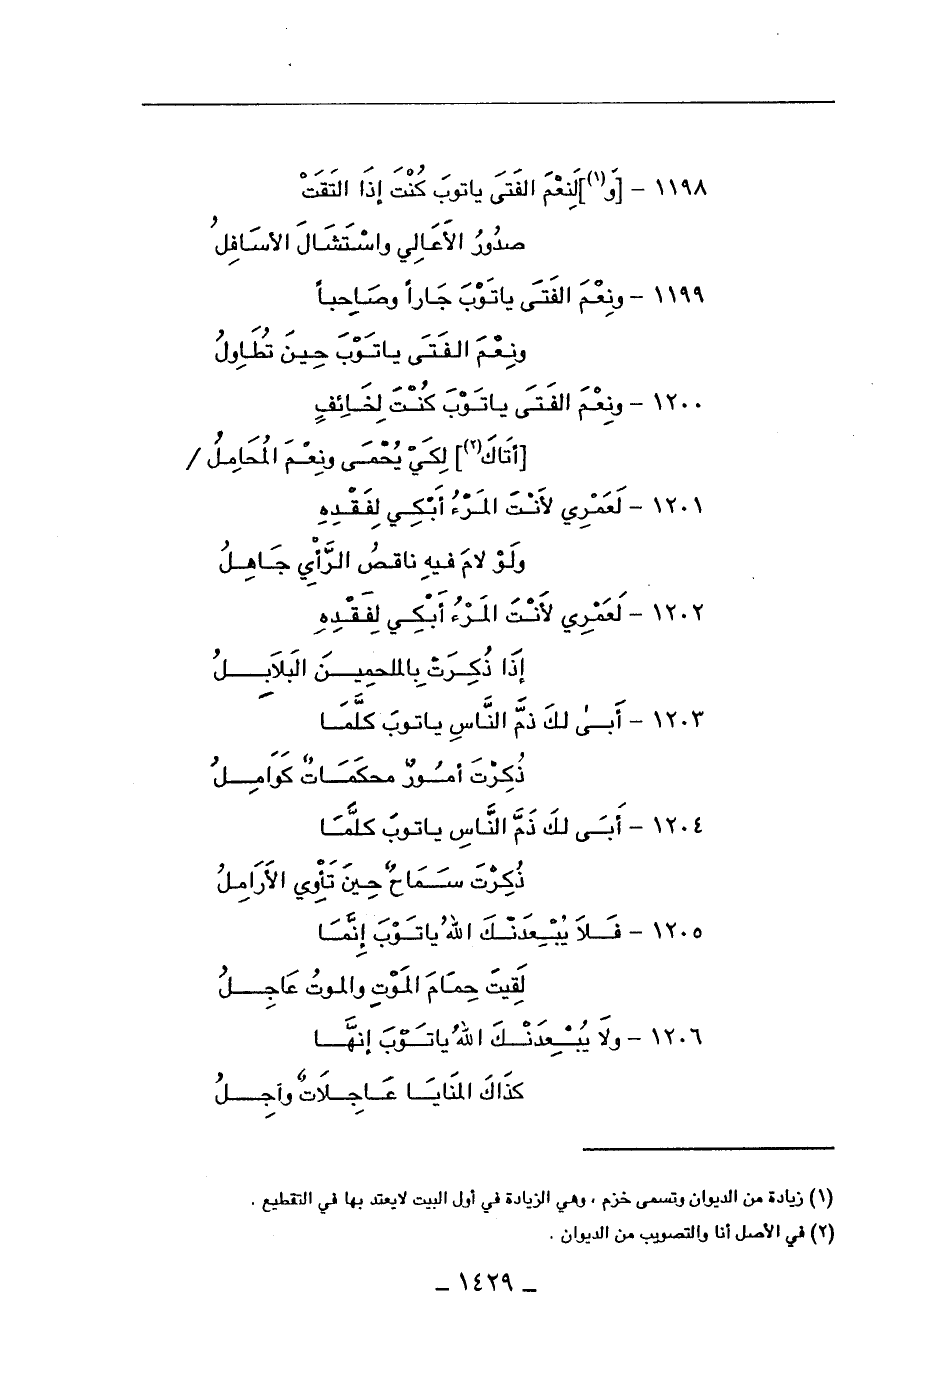 ١١٩٨ – [وَ(١)]لَنِعْمَ الفَتَى ياتوبَ كُنْتَ إذَا التَقَتْ
صدُورُ الأَعَالِي واسْتَشَالَ الأسَافِلُ
١١٩٩ – ونِعْمَ الفَتَى ياتَوْبَ جَاراً وصَاحِباً
ونِعْمَ الفَتَى ياتَوْبَ حِينَ تُطَاوِلُ
١٢٠٠ – ونِعْمَ الفَتَى ياتَوْبَ كُنْتَ لِخَائِفٍ
[أتَاكَ(٢)] لِكَيْ يُحْمَى ونِعْمَ المُحَامِلُ /
١٢٠١ – لَعَمْرِي لأَنْتَ المَرْءُ أَبْكِي لِفَقْدِهِ
ولَوْ لامَ فيهِ ناقصُ الرَّأْيِ جَاهِلُ
١٢٠٢ – لَعَمْرِي لأَنْتَ المَرْءُ أَبْكِي لِفَقْدِهِ
إذَا ذُكِرَتْ بِالملحمِينَ البَلاَبِلُ
١٢٠٣ – أَبىٰ لكَ ذمَّ النَّاسِ ياتوبَ كلَّمَا
ذُكِرْتَ أمُورٌ محكمَاتٌ كَوَامِلُ
١٢٠٤ – أَبَى لكَ ذَمَّ النَّاسِ ياتوبَ كلَّمَا
ذُكِرْتَ سمَاحٌ حِينَ تَأْوِي الأَرَامِلُ
١٢٠٥ – فَلاَ يُبْعِدَنْكَ اللهُ ياتَوْبَ إنَّمَا
لَقِيتَ حِمَامَ المَوْتِ والموتُ عَاجِلُ
١٢٠٦ – ولَا يُبْعِدَنْكَ اللهُ ياتَوْبَ إنهَّا
كذَاكَ المَنايَا عَاجِلَاتٌ وآجِلُ
(١) زيادة من الديوان وتسمى خزم ، وهي الزيادة في أول البيت لايعتد بها في التقطيع .
(٢) في الأصل أنا والتصويب من الديوان .
– ١٤٢٩ –